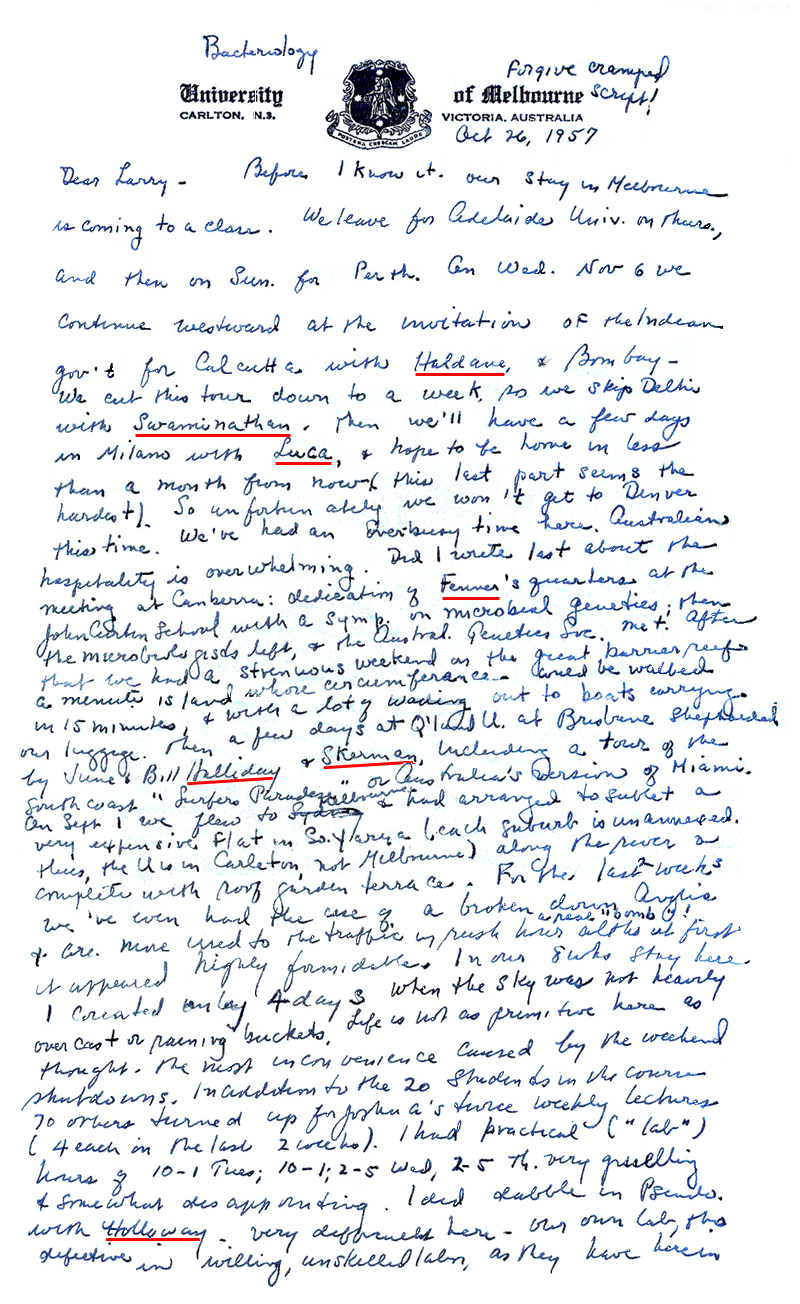 Bacteriology
Forgive cramped
script!
University of Melbourne
CARLTON, N.3. VICTORIA, AUSTRALIA
POSTERA CRESCAM LAUDE
Oct 26, 1957
Dear Larry - Before I know it our stay in Melbourne
is coming to a close. We leave for Adelaide Univ. on Thurs.,
and then on Sun. for Perth. On Wed. Nov 6 we
continue westward at the invitation of the Indian
gov't for Calcutta with Haldane, & Bombay -
We cut this tour down to a week, so we skip Delhi
with Swaminathan. Then we'll have a few days
in Milano with Luca, & hope to be home in less
than a month from now (this last part seems the
hardest). So unfortunately we won't get to Denver
this time. We've had an overbusy time here. Australian
hospitality is overwhelming. Did I write last about the
meeting at Canberra: dedication of Fenner's quarters at the
John Curtin School with a symp. on microbial genetics; then
the microbiologists left, & the Austral. Genetics Soc. met. After
that we had a strenuous weekend on the great barrier reef
a minute island whose circumference could be walked
in 15 minutes, & with a lot of wading out to boats carrying
our luggage. Then a few days at Q'land U. at Brisbane shepherded
by June & Bill Halliday & Skerman, including a tour of the
South coast "Surfers Paradise" or Australia's version of Miami.
On Sept 1 we flew to Melbourne & had arranged to sublet a
very expensive flat in So. Yarra (each suburb is unannexed.
thus, the U is in Carleton, not Melbourne) along the river &
complete with roof garden terrace. For the last 2 weeks
we've even had the use of a broken down Anglia
a real "bomb"!
& are more used to the traffic in rush hour altho at first
it appeared highly formidable. In our 8 wks stay here
I counted only 4 days when the sky was not heavily
overcast or raining buckets. Life is not as primitive here as
thought. The most inconvenience caused by the weekend
shutdowns. In addition to the 20 students in the course
70 others turned up for Joshua's twice weekly lectures
(4 each in the last 2 weeks). I had practical ("lab")
hours of 10-1 Tues; 10-1; 2-5 Wed, 2-5 Th. very gruelling
& somewhat disappointing. I did dabble in Pseudo.
with Holloway - very different here - our own lab, tho
defective in willing, unskilled labor, as they have here in